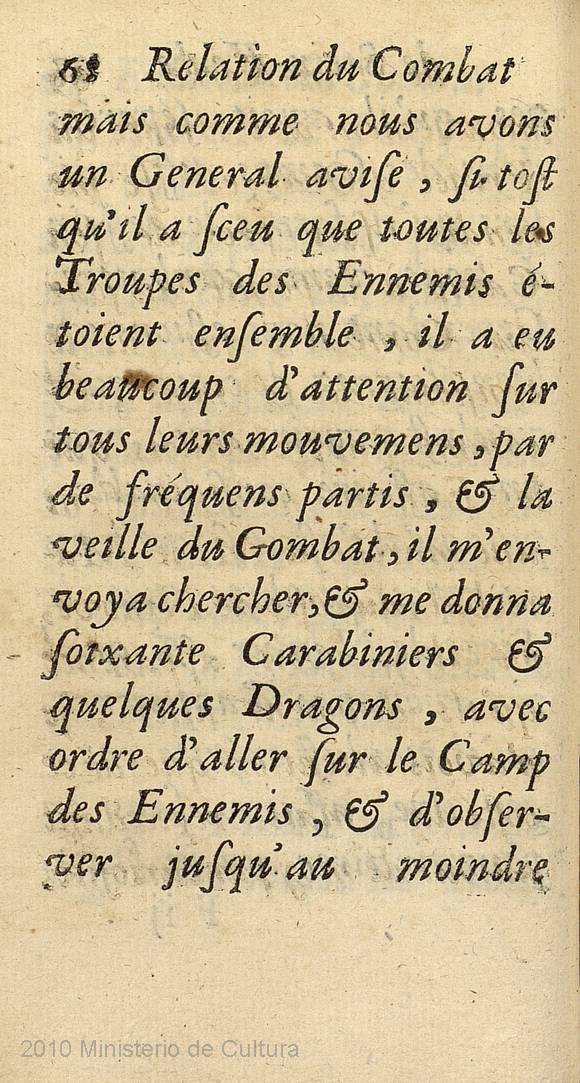 68 Relation du Combat
mais comme nous avons
un General aviſe , ſi toſt
qu'il a ſceu que toutes les
Troupes des Ennemis é-
toient enſemble , il a eu
beaucoup d'attention ſur
tous leurs mouvemens , par
de fréquens partis , & la
veille du Gombat , il m'en-
voya chercher, & me donna
ſoixante Carabiniers &
quelques Dragons , avec
ordre d'aller ſur le Camp
des Ennemis , & d'obſer-
ver juſqu'au moindre
2010 Ministerio de Cultura